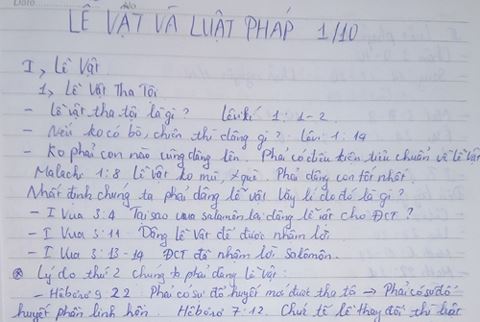 LỄ VẬT VÀ LUẬT PHÁP 1/10
I, Lễ Vật
1, Lễ Vật Tha Tội
- Lễ vật tha tội là gì? Lêvikí 1: 1-2.
- Nếu ko có bò, chiên thì dâng gì? Lêvi 1: 14
- Ko phải con nào cũng dâng lên. Phải có điều kiện tiêu chuẩn về lễ vật
Malachi 1:8 Lễ vật ko mù, què. Phải dâng con tốt nhất.
Nhất định chúng ta phải dâng lễ vật vậy lí do đó là gì?
- I Vua 3:4 Tại sao vua salômôn lại dâng lễ vật cho ĐCT?
- I Vua 3:11 Dâng lễ vật để được nhậm lời
- I Vua 3:13-14 ĐCT đã nhậm lời Salômôn.
Lý do thứ 2 chúng ta phải dâng lễ vật:
- Hêbơrơ 9:22 Phải có sự đổ huyết mới được tha tội → Phải có sự đổ
huyết phần linh hồn. Hêbơrơ 7:12. Chức tế lễ thay đổi thì luật